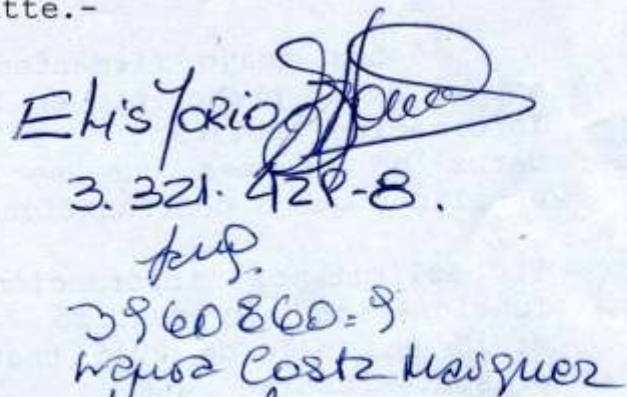 tte.-
Elis Yorio
3.321.428-8.
3960860-9
Costa Marquez